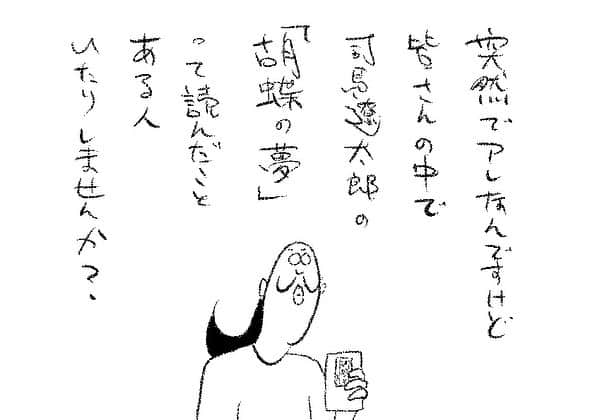 突然でアレなんですけど
皆さんの中で
司馬遼太郎の
「胡蝶の夢」
って読んだこと
ある人
いたりしませんか?